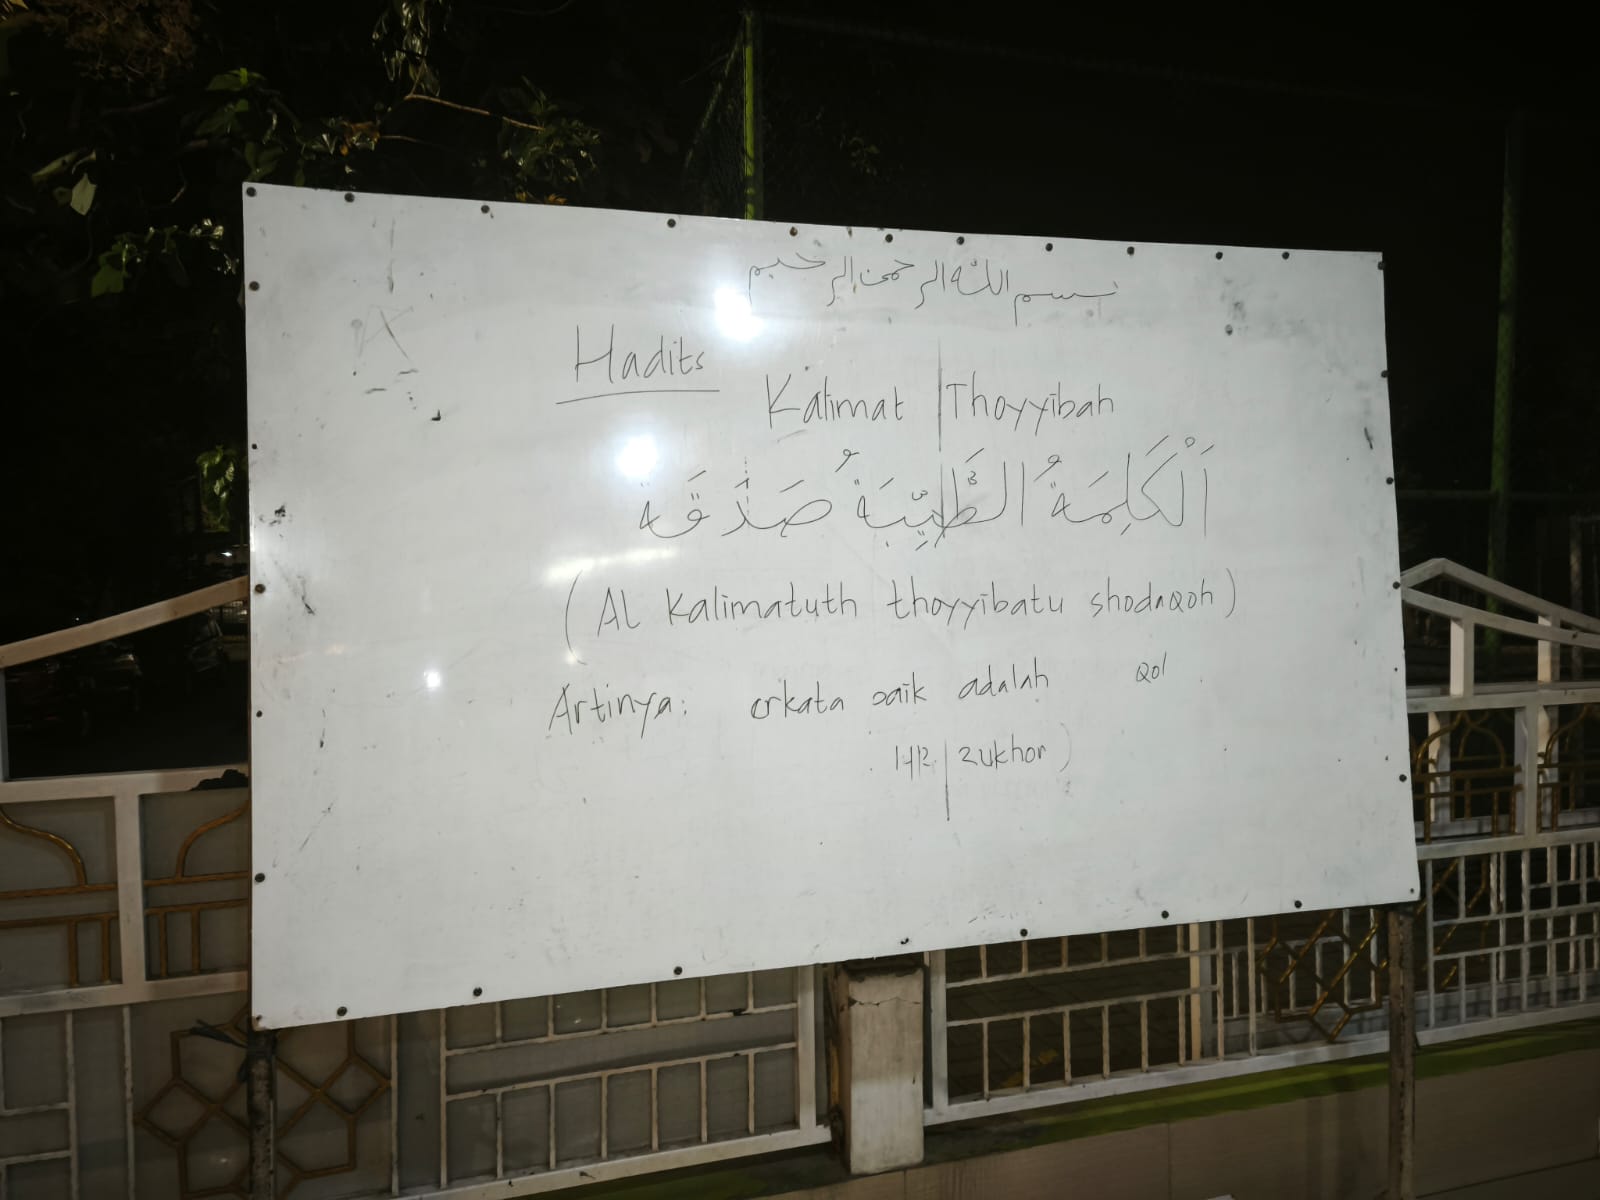 بسم الله الرحمن الرحيم
Hadits
Kalimat Thoyyibah
اَلْكَلِمَةُ الطَّيِّبَةُ صَدَقَة
(AL Kalimatuth thoyyibatu shodaqoh)
Artinya: erkata aik adalah qol
HR zukhor)